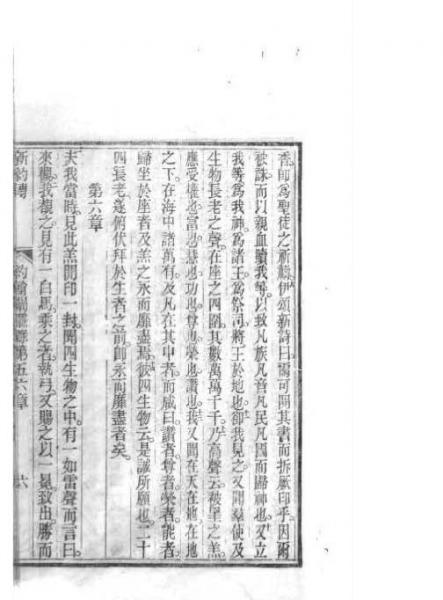 香即為聖徒之祈禱伊頌新詩曰爾可開其書而拆厥印乎因爾
被誅而以親血贖我等以致凡族凡音凡民凡國而歸神也又立
我等為我神為諸王為祭司將王於地也卻我見之又聞羣使及
生物長老之聲在座之四圍其數萬萬千千乃高聲云被皇之羔
應受權也富也慧也功也尊也榮也讚也我又聞在天在地在地
之下在海中諸萬有及凡在其中者而咸曰讚者尊者榮者能者
歸坐於座者及羔之永而靡盡焉彼四生物云是誠所願也二十
四長老遂俯伏拜於生者之前即永而靡盡者矣
第六章
夫我當時見此羔開印一封聞四生物之中有一如雷聲而言曰
來觀我觀之見有一白馬乘之者執弓又賜之以一冕致出勝而
新約書
約翰顯 第五六章
六